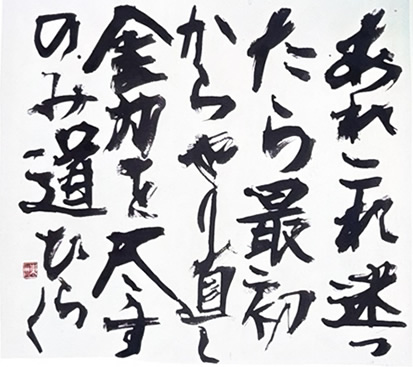 あれこれ迷っ
たら最初
からやり直し
全力を尽す
のみ道ひらく